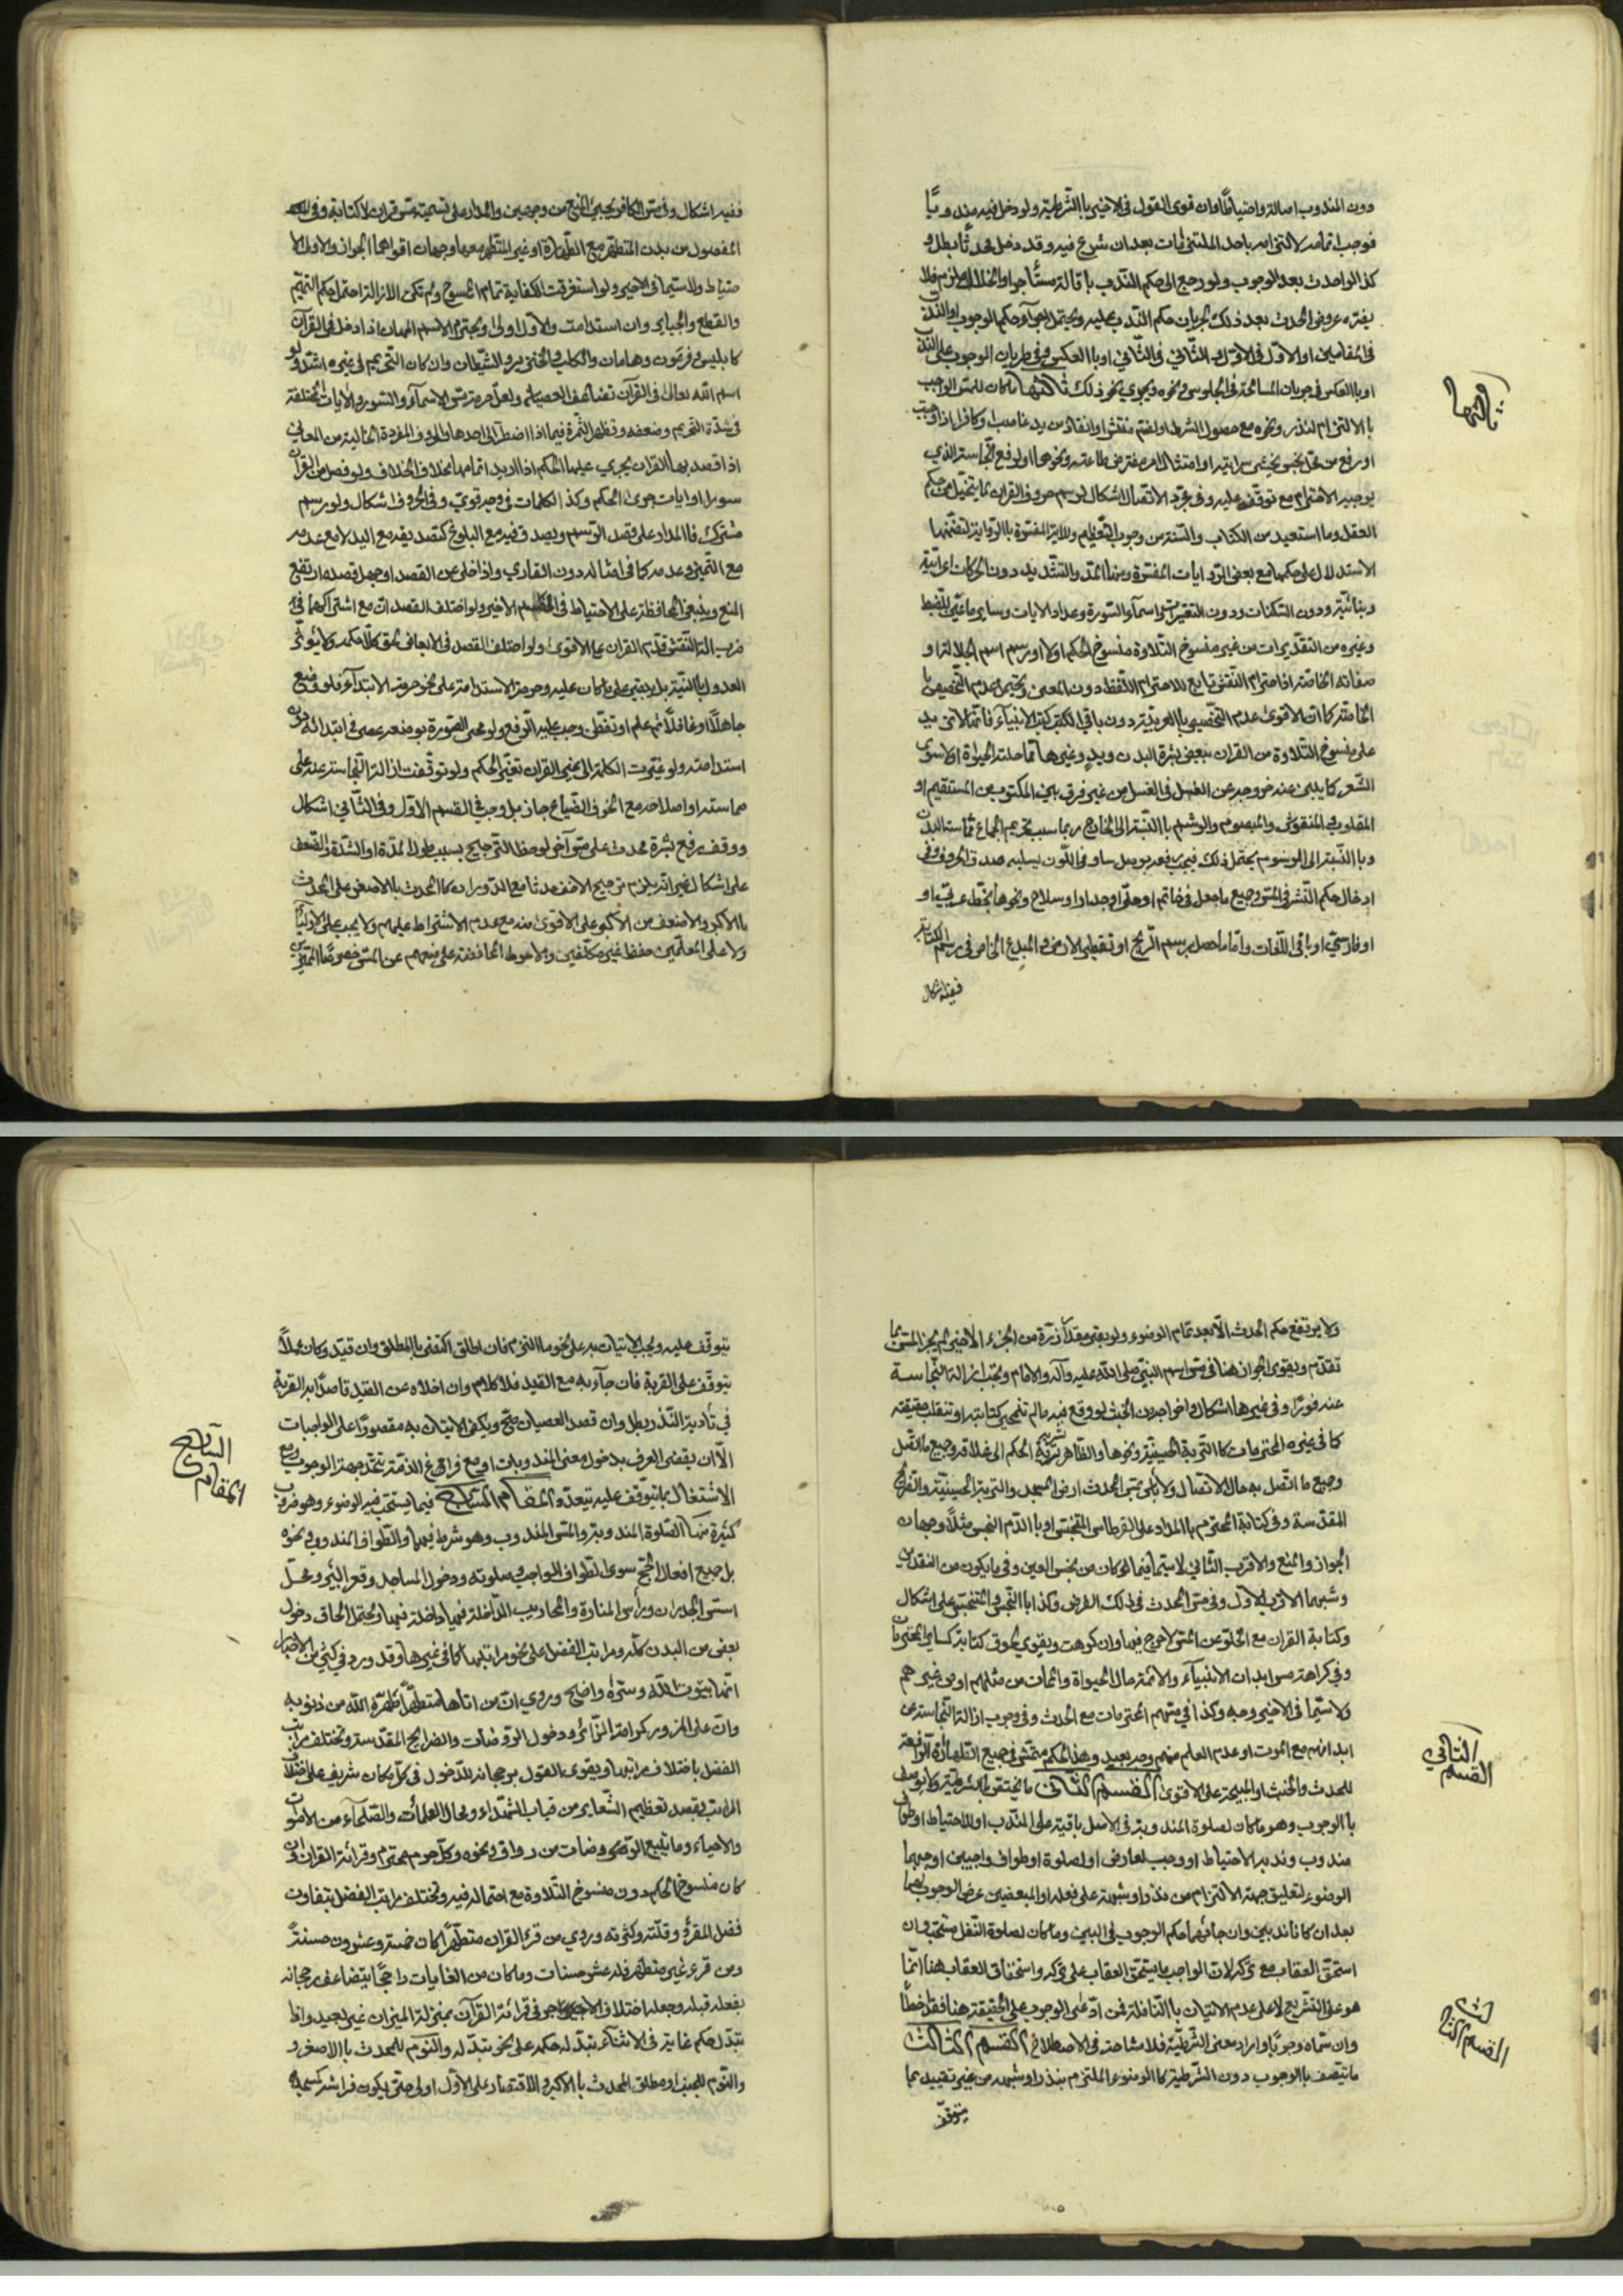 دون المندوب اصالة واضيافا وان قوى القول في الاخير بالشرطية ولو دخل فيه مندوبا
فوجب اتمامه لالتزامه باحد الملتزمات بعد ان شرع فيه وقد دخل محدثا بطل و
كذا لو احدث بعد الوجوب ولو رجع الى حكم الندب باقالة مستأجر او انحلال ملزم فلا
يضره عروض الحدث بعد ذلك لجريان حكم الندب عليه ويحتمل اجراء حكم الوجوب او الندب
في المقامين او الاول في الاول والثاني في الثاني او بالعكس وفي طريان الوجوب على الندب
او بالعكس في جريان المسامحة في الجلوس ونحوه ويجري نحو ذلك ثالثها ما كان للمس الواجب
بالالتزام لنذر ونحوه مع حصول الشرط او لضم منقش او انقاذ من يد غاصب او كافر اذا وجبت
او رفع من محل نجس يخشى سرايته او امتثال امر مفترض طاعته ونحوها او لرفع النجاسة الذي
يوجبه الاحترام مع توقفه عليه وفي مجرد الاتصال اشكال لرسم حروف القران لما يتخيل من حكم
العقل وما استفيد من الكتاب والسنة من وجوب التعظيم وللاية المفسرة بالرواية لتضمنها
الاستدلال على حكمها مع بعض الروايات المفسرة ومنها المد والتشديد دون الحركات اعرابية
وبنائية ودون السكنات ودون التفسيرات واسماء السورة وعداد الايات وساير ما عين للضبط
وغيره من التقديرات من غير منسوخ التلاوة منسوخ الحكم اولا او رسم اسم الجلالة او
صفاته الخاصة اذ احترام النقش تابع للاحترام اللفظ دون المعنى ويحتمل عدم التخصيص با
الخاصة كما ان الاقوى عدم التخصيص بالعربية دون باقي الكتب كتب الانبياء فانها لا تزيد
على منسوخ التلاوة من القران ببعض بشرة البدن ويد وغيرها مما حلته الحيوة او لا سوى
الشعر كما ينبئ عنه خروجه عن الغسل في الغسل من غير فرق بين المكتوب من المستقيم او
المقلوب والمنقوش والمبصوم والوشم بالنسبة الى الخارج ربما سبب تحريم الجماع مماسة البدن
وبالنسبة الى الموشوم يحتمل ذلك فيجب رفعه بوصل ساو في اللون يسلبه صدق الحروف وفي
ادخال حكم النشر في المس وجميع ما جعل في خاتم او حلي او جدار او سلاح ونحوها بخط عربي او
او فارسي او باقي اللغات واما ما حصل برسم الريح او تقطيع الارض والمبلغ الخاص في رسم الكتابة
ففيه اشكال
ثالثها
ففيه اشكال وفي مس الكافر يجيئ المنع من وجهين والمدار على تسمية مس قران لا كتابة وفي
المفصول من بدن المتطهر مع الطهارة او غير المتطهر معها وجهان اقواهما الجواز والاول الا
حتياط ولا سيما في الاخير ولو استغرقت الكفاية تمام الممسوح ولم تكن الازالة احتمل حكم التيمم
والقطع والجباير وان استدامت والاول اولى ويحترم الاسم المهان اذا دخل في القرآن
كابليس وفرعون وهامان والكلب والخنزير والشيطان وان كان التحريم في غيره اشد ولو
اسم الله تعالى في القرآن تضاعف العصيان ولعل حرمة مس الاسماء والسور والايات مختلفة
في شدة التحريم وضعفه وتظهر الثمرة فيما اذا اضطر الى احدها والحروف المفردة الخالية من المعاني
اذا قصد بها القران يجري عليها الحكم اذا اريد اتمامها بخلاف الخلاف ولو فصل من القرآن
سورا او ايات جرى الحكم وكذا الكلمات في وجه قوي وفي الحروف اشكال ولو رسم
مشترك فالمدار على قصد الرسم ويصدق فيه مع البلوغ كتصديقه مع اليد لا مع عدمه
مع التميز وعدمه كما في امثاله دون القاري واذا خلى عن القصد او جهل قصده ارتفع
المنع وينبغي المحافظة على الاحتياط في القسم الاخير ولو اختلف القصدان مع اشتراكهما في
ضرب آلة النقش قدم القران على الاقوى ولو اختلف القصد في الابعاض لحق كلا حكمه ولا يؤثر
العدول بالنية بل يبقى على ما كان عليه وحرمة الاستدامة على نحو حرمة الابتداء فلو وضع
جاهلا او غافلا ثم علم او تفطن وجب عليه الرفع ولو محى الصورة بوضعه عصى في ابتدائه دون
استدامته ولو غيرت الكلمة الى غير القران تغير الحكم ولو توقفت ازالة النجاسة عنه على
مماسته او اصلاحه مع الخوف الضياع جاز بل وجب في القسم الاول وفي الثاني اشكال
ووقف رفع بشرة محدث على مس آخر لوحظ الترجيح بسبب طول المدة او الشدة والضعف
على اشكال غير انه يلزم ترجيح الاخف حدثا مع الدوران كالمحدث بالاصغر على المحدث
بالاكبر والاضعف من الاكبر على الاقوى منه مع عدم الاشتراط عليهم ولا يجب على الاولياء
ولا على المعلمين حفظ غير مكلفين والاحوط المحافظة على منعهم عن المس خصوصا المميزين
ولا يرتفع حكم الحدث الا بعد تمام الوضوء ولو بقي مقدار ذرة من الجزء الاخير لم يجز المس كما
تقدم ويقوى الجواز هنا في مس اسم النبي صلى الله عليه وآله والامام ويجب ازالة النجاسة
عنه فورا وفي غيرها اشكال واخراجه من الخبث لو وقع فيه ما لم تمحى كتابته او تنقلب حقيقته
كما في غيره المحترمات كالتربة الحسينية ونحوها والظاهر تسرية الحكم الى غلافه وجميع ما اتصل
وجميع ما اتصل به حال الاتصال ولا بأس بمس المحدث ارض المسجد والتربة الحسينية والضرائح
المقدسة وفي كتابة المحترم بالمداد على القرطاس المتنجس او بالدم النجس مثلا وجهان
الجواز والمنع والاقرب الثاني لا سيما فيما لو كان من نجس العين وفي ما يكون من النقدين
وشبهما الاقرب الاول وفي مس المحدث في ذلك الفرض وكذا بالنجس والمتنجس على اشكال
وكتابة القران مع الخلو عن المس لا حرج فيها وان كرهت ويقوى لحوق كتابة كساير المحترمات
وفي كراهة مس ابدان الانبياء والائمة حال الحيواة والممات من مثلهم او من غيرهم
ولا سيما في الاخير وجه وكذا في مسهم المحترمات مع الحدث وفي وجوب ازالة النجاسة عن
ابدانهم مع الموت او عدم العلم منهم وجه بعيد وهذا الحكم متمشى في جميع الطهارة الرافعة
للحدث والخبث او المبيحة على الاقوى القسم الثاني ما يختص بالشرطية ولا يوصف
بالوجوب وهو ما كان لصلوة المندوبة في الاصل باقية على الندب او للاحتياط او طواف
مندوب وندبه الاحتياط او وجب لعارض او لصلوة او طواف واجبين اوجبهما
الوضوء لتعليق جهة الالتزام من نذر او شبهة على فعله او المبعضين عرض الوجوب بهما
بعد ان كانا ندبين وان جائهما حكم الوجوب في البين وما كان لصلوة النفل مستحب وان
استحق العقاب مع تركه لان الواجب ما يستحق العقاب على تركه واستحقاق العقاب هنا انما
هو على التشريع لا على عدم الاتيان بالنافلة فمن ادعى الوجوب على الحقيقة هنا فقد اخطأ
وان سماه وجوبا واراد معنى الشرطية فلا مشاحة في الاصطلاح القسم الثالث
ما يتصف بالوجوب دون الشرطية كالوضوء الملتزم بنذر او شبهه من غير تقييد بما
يتوقف
القسم الثاني
القسم الثالث
يتوقف عليه ويجب الاتيان به على نحو ما التزم فان اطلق اكتفى بالمطلق وان قيد وكان عملا
يتوقف على القربة فان جآء به مع القيد فلا كلام وان اخلاه عن القيد قاصدا به القربة
في تأدية النذر بطل وان قصد العصيان صح ويكفي الاتيان به مقصورا على الواجبات
الا ان يقضى العرف بدخول معنى المندوبات او مع فراغ الذمة تتحد جهة الوجوب ومع
الاشتغال بما يتوقف عليه تتعدد المقام السابع فيما يستحب فيه الوضوء وهو ضروب
كثيرة منها الصلوة المندوبة والمس المندوب وهو شرط فيهما والطواف المندوب ونحوه
بل جميع افعال الحج سوى الطواف الواجب وصلوته ودخول المساجد وقعر البئر ومحل
اس الجدران ورأس المنارة والمحاريب الداخلة فيها داخلة فيها ويحتمل الحاق دخول
بعض من البدن كله ومراتب الفضل على نحو مراتبها كما في غيرها وقد ورد في كثير من الاخبار
انها بيوت الله وسره واضح وروي ان من اتاها متطهرا طهره الله من ذنوبه
وان على المزور كرامة الزائر ودخول الروضات والضرايح المقدسة وتختلف مراتب
الفضل باختلاف مراتبها ويقوى القول برجحانه للدخول في كل مكان شريف على اختلاف
المراتب بقصد تعظيم الشعاير من قباب الشهداء ومحال العلماء والصلحاء من الاموات
والاحياء وما يتبع الروضات من رواق ونحوه وكل حرم محترم وقرائة القران وان
كان منسوخ الحكم دون منسوخ التلاوة مع احتماله فيه وتختلف مراتب الفضل بتفاوت
فضل المقرؤ وقلته وكثرته وروي من قرء القران متطهرا كان خمسة وعشرون حسنة
ومن قرء غير متطهر فله عشر حسنات وما كان من الغايات راجحا يتضاعف رجحانه
بفعله قبله وجعله اختلاف الاجر في قرائة القرآن بمنزلة الميزان غير بعيد واذا
تبدل حكم غاية في الاثناء تبدل له حكمه على نحو تبدله والنوم للمحدث بالاصغر و
والنوم للجنب او مطلق المحدث بالاكبر والاقتصار على الاول اولى حتى يكون فراشه كمسجده
السابع
المقام